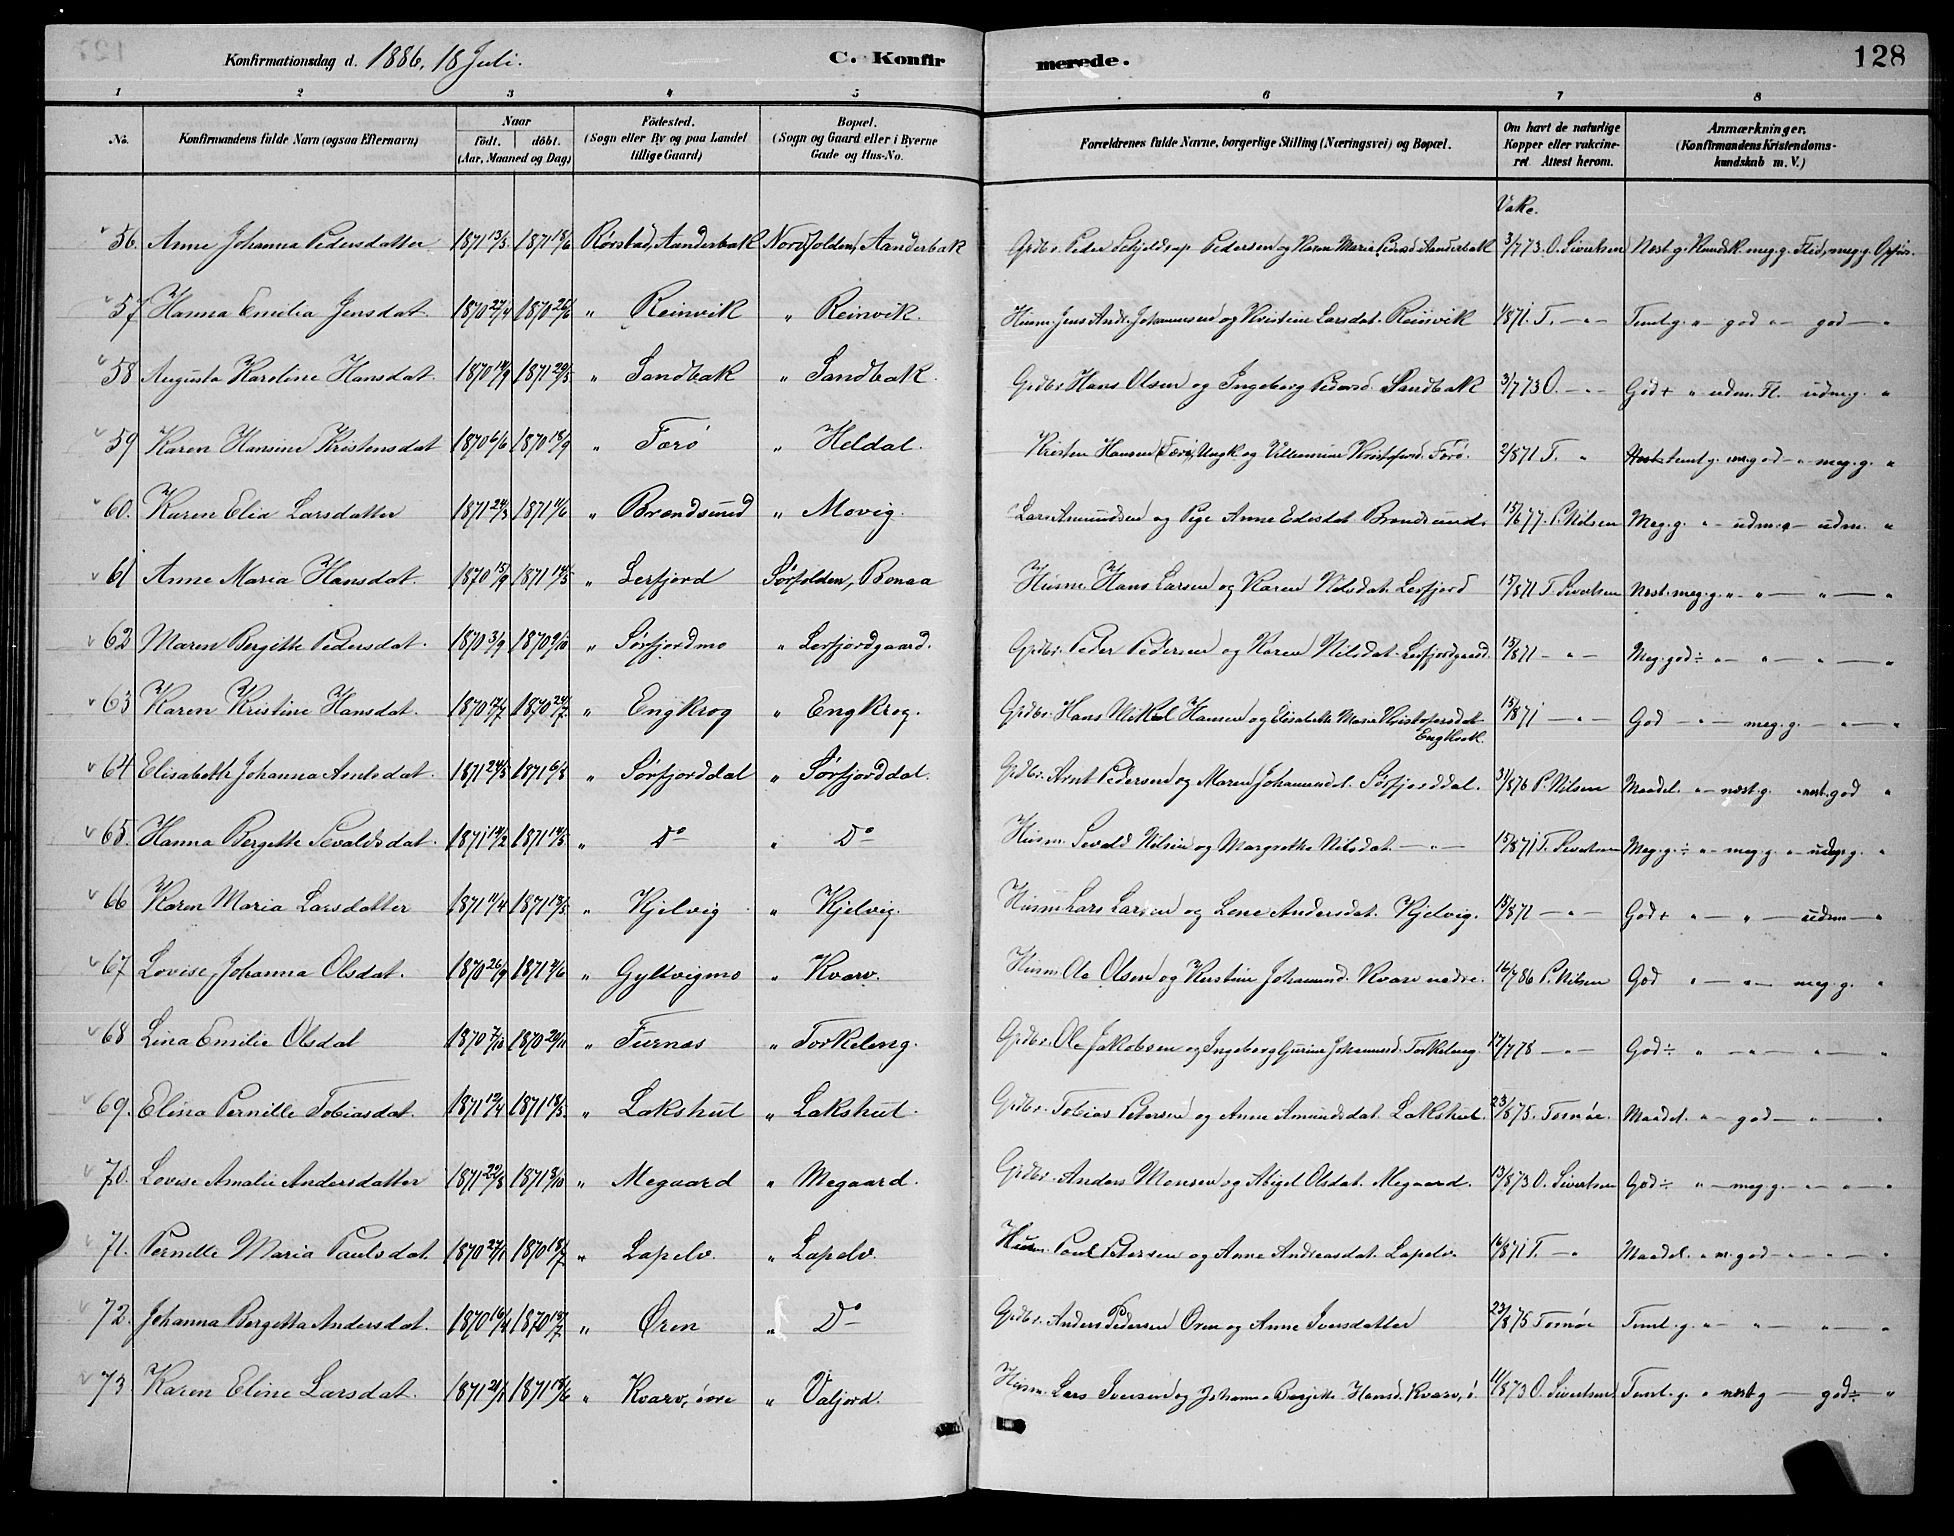 Konfirmationsdag d. 1886, 18 Juli.
C. Konfirmerede.
128
1 2 3 4 5 6 7 8
No. Konfirmandens fulde Navn (ogsaa Efternavn) Naar født. døbt. (Aar, Maaned og Dag) Födested. (Sogn eller By og paa Landet tillige Gaard) Bopæl. (Sogn og Gaard eller i Byerne Gade og Hus-No. Forældrenes fulde Navne, borgerlige Stilling (Næringsvei) og Bopæl. Om havt de naturlige Kopper eller vakcineret. Attest herom. Anmærkninger. (Konfirmandens Kristendomskundskab m. V.)
Vakc.
56. Anne Johanna Pedersdatter 1871 13/3 1871 18/6 Rørstad, Aanderbak Nordfolden, Aanderbak Grdbr. Peder Schjeldrup Pedersen og Karen Maria Pedersd Aanderbak 3/7 73 O. Sivertsen Næst. g. Kundsk. meg. g. Flid, meg. g. Opfør.
57. Hanna Emilia Jensdat. 1870 27/4 1870 26/6 " Reinvik " Reinvik. Husm. Jens Andr. Johannesen og Kristine Larsdat. Reinvik T. — " — Teml. g. " — god " — god — "
58 Augusta Karoline Hansdat. 1870 19/9 1871 29/5 " Sandbak " Sandbak. Grdbr. Hans Olsen og Ingeborg Pedersd. Sandbak 3/7 73 O. — " — God + " udm. Fl. udm. g. "
59 Karen Hansine Kristensdat 1870 6/6 1870 18/9 " Forø " Heldal. Kristen Hansen Forø, Ungk og Villumine Kristofersd. Forø. 2/8 71 T. " teml. g. god — " meg. g. "
60. Karen Elia Larsdatter 1871 24/3 1871 11/6 " Brændsund " Movig. Lars Amundsen og Pige Anne Edisdat Brændsund. 15/6 77. P. Nilsen Meg. g. " — udm. " — udm. "
61 Anne Maria Hansdat. 1870 15/9 1871 14/5 " Lerfjord Sørfolden, Bonaa Husm. Hans Larsen og Karen Nilsdat. Lerfjord 15/8 71 T. Sivertsen Næst. meg. g. " — " — " — "
62 Maren Bergitte Pedersdat. 1870 3/9 1870 9/10 " Sørfjordmo " Lerfjordgaard. Grdbr. Peder Pedersen og Karen Nilsdat. Lerfjordgaard. 15/8 71 — " — Meg. god ÷ " — " — " — "
63 Karen Kristine Hansdat. 1870 1870 24/7 " Engkrog " Engkrog. Grdbr. Hans Mikal Hansen og Elisabeth Maria Kristofersdat Engkrok. 15/8 71 — " — God — " — meg. g. — " — "
64 Elisabeth Johanna Arntsdat. 1871 24/3 1871 6/8 " Sørfjorddal " Sørfjorddal. Grdbr. Arnt Pedersen og Maren Johannesdat. Sørfjorddal. 31/8 76 P. Nilsen Maadel. " — næst. g. næst. god "
65. Hanna Bergette Sevaldsdat. 1871 14/2 1871 14/5 " Do " Do Husm. Sevald Nilsen og Margrethe Nilsdat. — " — 15/8 71 T. Sivertsen Meg. g. ÷ " — meg. g. " udm. g. "
66 Karen Maria Larsdatter 1871 11/4 1871 " Kjelvig " Kjelvig. Husm. Lars Larsen og Lene Andersdat. Kjelvig. 15/8 71 — " — God + " — " — udm — "
67 Lovise Johanna Olsdat. 1870 26/9 1871 " Gyltvigmo " Kvarv. Husm. Ole Olsen og Kirstine Johannesd. Kvarv nedre. 16/7 86 P. Nilsen God " — " — meg. g. "
68 Lina Emilie Olsdat 1870 7/10 1870 20/11 " Furnæs " Torkeleng. Grdbr. Ole Jakobsen og Ingeborg Gurine Johannesd. Torkeleng 17/7 78 — " — God ÷ " — " — " — "
69. Elina Pernille Tobiasdat. 1871 12/4 1871 18/5 " Lakshul " Lakshul. Grdbr. Tobias Petersen og Anne Amundsdat. Lakshul. 23/8 75. Tornøe. Maadel. " — god — " — "
70. Lovise Amalie Andersdatter 1871 22/8 1871 8/10 " Megaard " Megaard. Grdbr. Anders Monsen og Abigel Olsdat. Megaard. 13/8 73 O. Sivertsen God ÷ " — meg. g. — " — "
71. Pernille Maria Paulsdat. 1870 27/1 1870 18/7 " Lapelv " Lapelv. Husm. Paul Petersen og Anne Andreasdat. Lapelv. 16/8 71 T. — " Maadel. " n. god — " — " — "
72. Johanna Bergetta Andersdat. 1870 16/4 1870 " Øren " Do Grdbr. Anders Pedersen Øren og Anne Iversdatter 23/8 75 Tornøe Teml. g. " — " — " — "
73 Karen Eline Larsdat. 1871 21/1 1871 18/6 " Kvarv, övre " Valjord. Husm. Lars Iversen og Johanna Bergitte Hansd. Kvarv, ö. 11/8 73 O. Sivertsen Teml. g. " næst. g — god ÷ "